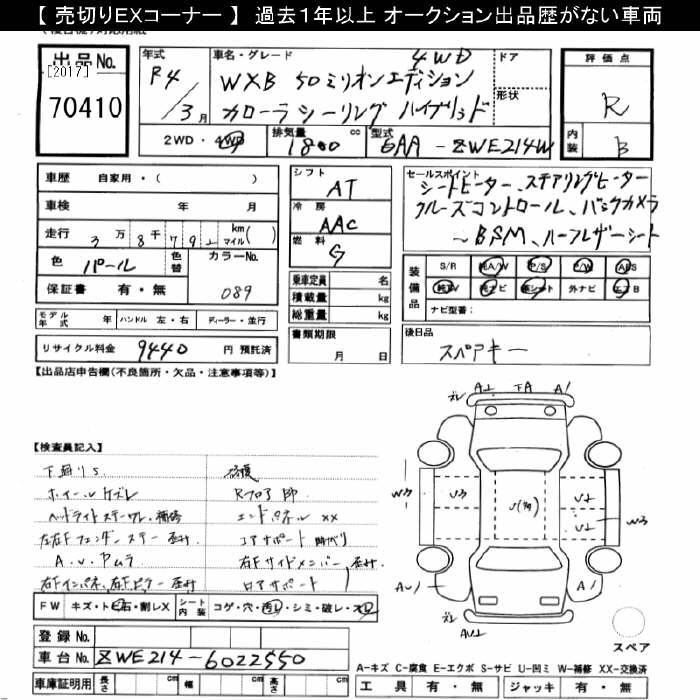 【 売切りEXコーナー 】 過去１年以上 オークション出品歴がない車両
出品 No.
[2017]
70410
年式
R4
/3月
車名・グレード
4WD
WXB 50ミリオンエディション
カローラ ツーリング ハイブリッド
ドア
形状
2WD・4WD
排気量
1800 cc
型式
6AA-ZWE214W
評価点
R
内装
B
車歴 自家用・( )
車検 年 月
走行 3万8千7 9 km マイル( )
色 パール
色替
カラーNo.
089
保証書 有・無
モデル年式 年
ハンドル 左・右
ディーラー・並行
リサイクル料金 9440 円 預託済
シフト
AT
冷房
AAC
燃料
G
乗車定員 名
積載量 kg
総重量 kg
書類期限
月 日
セールスポイント
シートヒーター、ステアリングヒーター
クルーズコントロール、バックカメラ
～BSM、ハーフレザーシート
装備品
S/R 純A/W P/S P/W ABS
純TV 純ナビ 革シート 外ナビ エアB
ナビ型番：
後日品
スペアキー
【出品店申告欄(不良箇所・欠品・注意事項等)】
【検査員記入】
下廻りS
ホイールケズレ
ヘッドライトステー
左右Fフェンダーステー
A.U.ヤムラ
右Fインパネ、右Fピラー
修復
Rフロア
エンドパネル XX
コアサポート
右Fサイドメンバー
ロアサポート
FW キズ・トビ石・割レX
シート内装 コゲ・穴・汚レ・シミ・破レ・スレ
登録 No.
車台 No. ZWE214-6022550
車庫証明用 長さ cm 幅 cm 高さ cm
A
下A
A1
W3
U3
W3
AU1
A1
スペア
A-キズ C-腐食 E-エクボ S-サビ U-凹ミ W-補修 XX-交換済
工具 有・無 ジャッキ 有・無